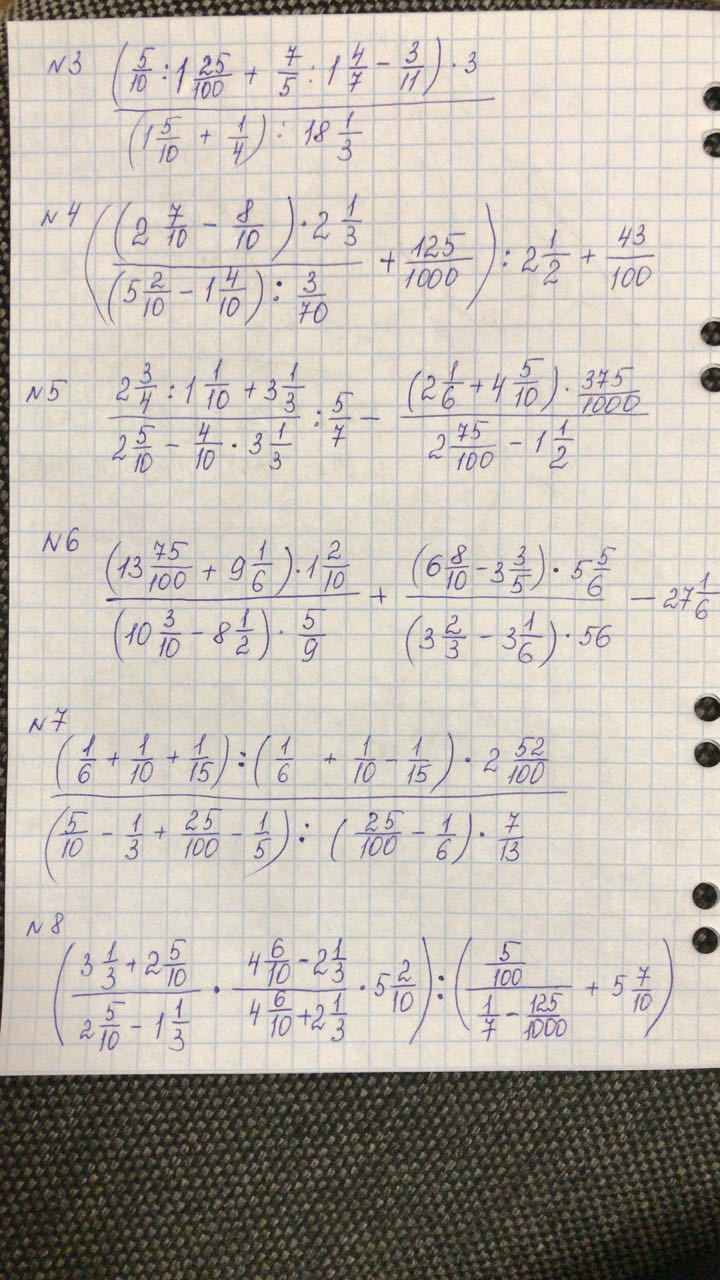 №3 ((5/10 : 1 25/100 + 7/5 : 1 4/7 − 3/11) · 3) / ((1 5/10 + 1/4) : 18 1/3)
№4 (((2 7/10 − 8/10) · 2 1/3) / ((5 2/10 − 1 4/10) : 3/70) + 125/1000) : 2 1/2 + 43/100
№5 (2 3/4 : 1 1/10 + 3 1/3) / (2 5/10 − 4/10 · 3 1/3) : 5/7 − ((2 1/6 + 4 5/10) · 375/1000) / (2 75/100 − 1 1/2)
№6 ((13 75/100 + 9 1/6) · 1 2/10) / ((10 3/10 − 8 1/2) · 5/9) + ((6 8/10 − 3 3/5) · 5 5/6) / ((3 2/3 − 3 1/6) · 56) − 27 1/6
№7
((1/6 + 1/10 + 1/15) : (1/6 + 1/10 − 1/15) · 2 52/100) / ((5/10 − 1/3 + 25/100 − 1/5) : (25/100 − 1/6) · 7/13)
№8
((3 1/3 + 2 5/10) / (2 5/10 − 1 1/3) · (4 6/10 − 2 1/3) / (4 6/10 + 2 1/3) · 5 2/10) : ((5/100) / (1/7 − 125/1000) + 5 7/10)